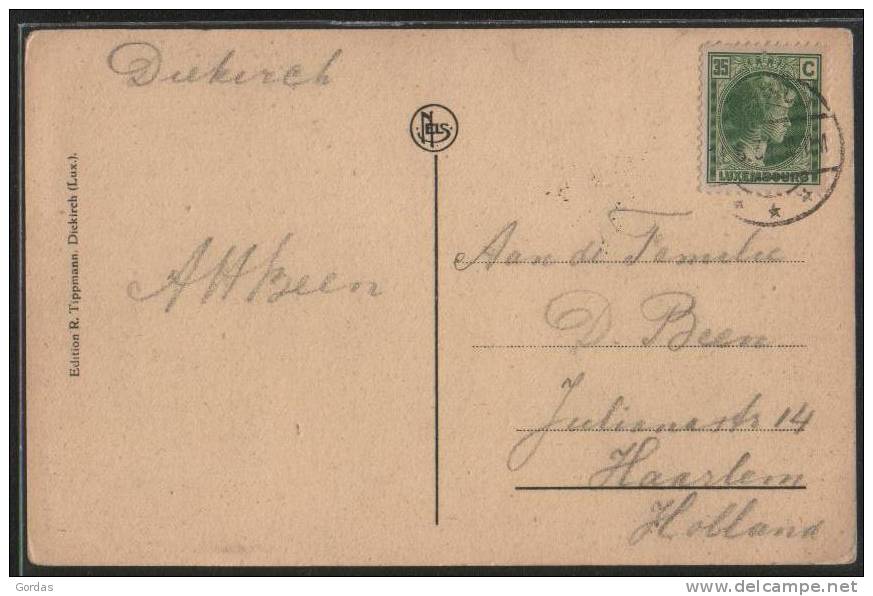 Diekirch
NELS
35 C
LUXEMBOURG
Edition R. Tippmann. Diekirch (Lux.).
A H Been
Aan de Familie
D. Been
Julianastr 14
Haarlem
Holland
Gordas
delcampe.net